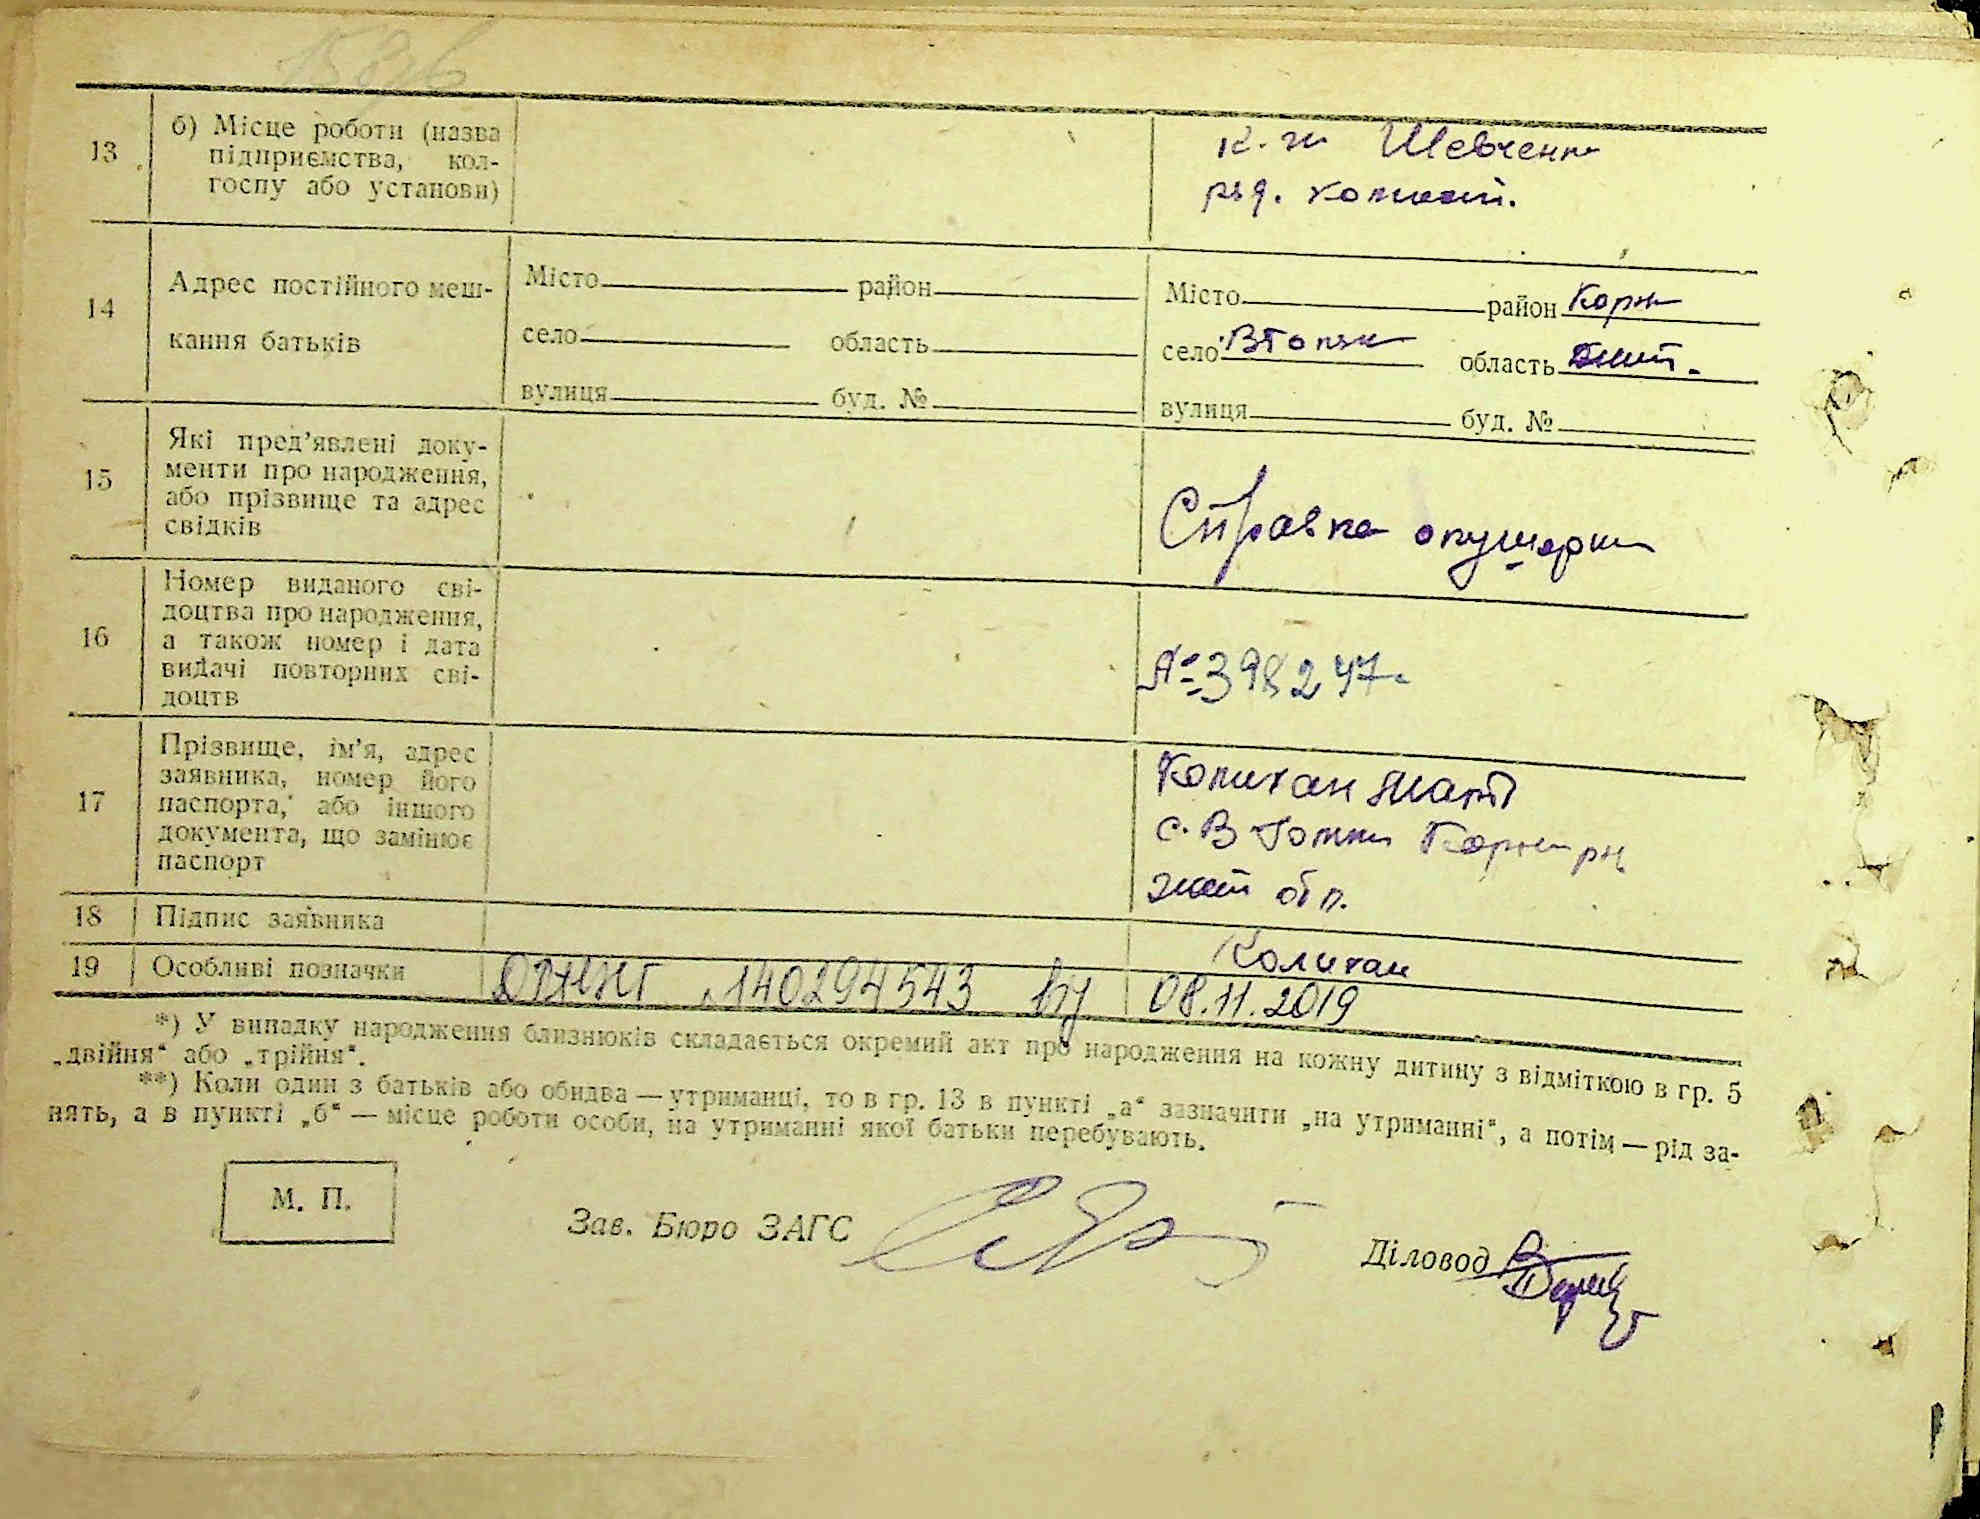 13
б) Місце роботи (назва
підприємства, кол-
госпу або установи)
к. ім Шевченк
ряд. колхот.
14
Адрес постійного меш-
кання батьків
Місто район
село область
вулиця буд. №
Місто район Корн
село область Жит.
вулиця буд. №
15
Які пред’явлені доку-
менти про народження,
або прізвище та адрес
свідків
Справка акушерки
16
Номер виданого сві-
доцтва про народження,
а також номер і дата
видачі повторних сві-
доцтв
№ 398247.
17
Прізвище, ім’я, адрес
заявника, номер його
паспорта, або іншого
документа, що замінює
паспорт
с. В Корн рн
жит обл.
18 Підпис заявника
19 Особливі позначки
140294543 від 08.11.2019
*) У випадку народження близнюків складається окремий акт про народження на кожну дитину з відміткою в гр. 5
„двійня“ або „трійня“.
**) Коли один з батьків або обидва — утриманці, то в гр. 13 в пункті „а“ зазначити „на утриманні“, а потім — рід за-
нять, а в пункті „б“ — місце роботи особи, на утриманні якої батьки перебувають.
М. П.
Зав. Бюро ЗАГС
Діловод